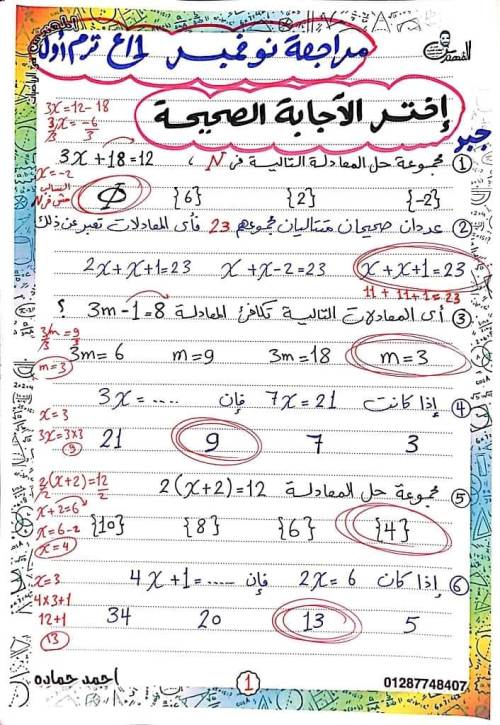 المهندس
مراجعة نوفمبر ١/ع ترم أول
إختر الأجابة الصحيحة
جبر
① مجموعة حل المعادلة التالية في N ، 3x+18=12
{-2} {2} {6} Φ
3x=12-18
3x/3=-6/3
x=-2
السالب
مش في N
② عددان صحيحان متتاليان مجموعهم 23 فأى المعادلات تعبر عن ذلك
x+x+1=23 x+x-2=23 2x+x+1=23
11+11+1=23
③ أى المعادلات التالية تكافئ المعادلة 3m-1=8 ؟
m=3 3m=18 m=9 3m=6
3m/3=9/3
m=3
④ إذا كانت 7x=21 فإن 3x=.....
3 7 9 21
x=3
3x=3x3
9
⑤ مجموعة حل المعادلة 2(x+2)=12
{4} {6} {8} {10}
2(x+2)/2=12/2
x+2=6
x=6-2
x=4
⑥ إذا كان 2x=6 فإن 4x+1=.....
5 13 20 34
x=3
4x3+1
12+1
13
01287748407 1 احمد حماده